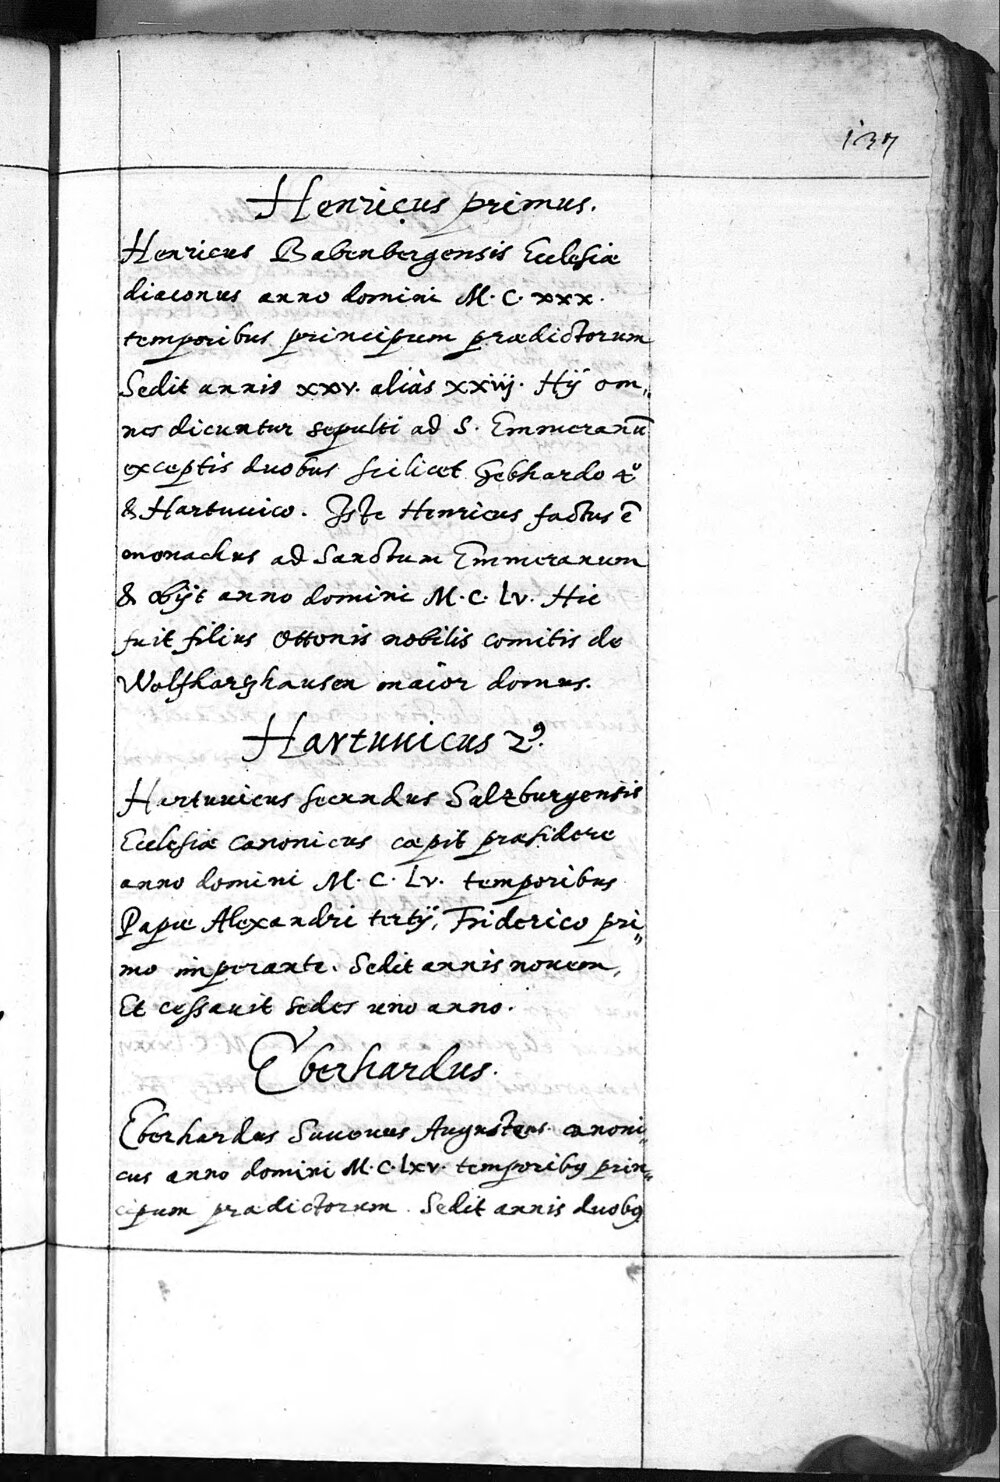 137
Henricus primus.
Henricus Babenbergensis Ecclesiæ
diaconus anno domini M. C. xxx.
temporibus principum prædictorum
Sedit annis xxv. aliàs xxvij. Hij om„
nes dicuntur sepulti ad S. Emmeranū
exceptis duobus scilicet Gebhardo 4º
& Hartuuico. Iste Henricus factus ē
monachus ad Sanctum Emmeranum
& obijt anno domini M. C. Lv. Hic
fuit filius Ottonis nobilis comitis de
Wolfhartzhausen maior domus.
Hartuuicus 2⁹.
Hartuuicus secundus Salzburgensis
Ecclesiæ Canonicus cœpit præsidere
anno domini M. C. Lv. temporibus
Papæ Alexandri tertij, Friderico pri„
mo imperante. Sedit annis nouem,
Et cessauit sedes uno anno.
Eberhardus.
Eberhardus Sueuus Augustens. canoni„
cus anno domini M. C. Lxv. temporibꝰ prin„
cipum prædictorum. Sedit annis duobꝰ